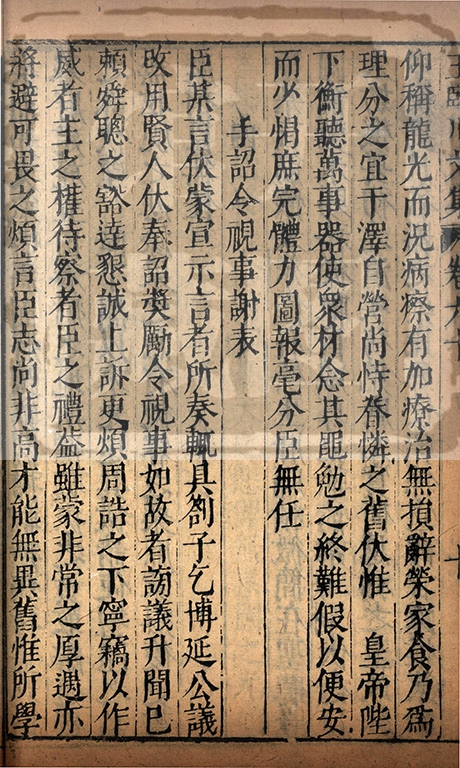 王臨川文集 卷六十
仰稱龍光而況病瘵有加療治無損辭榮家食乃爲
理分之宜干澤自營尚恃眷憐之舊伏惟 皇帝陛
下衡聽萬事器使衆材念其黽勉之終難假以便安
而少惰庶完體力圖報毫分臣無任
手詔令視事謝表
臣某言伏蒙宣示言者所奏輒具劄子乞博延公議
改用賢人伏奉詔獎勵令視事如故者謗議升聞已
頼舜聰之豁達懇誠上訴更煩周誥之下寧竊以作
威者主之權待察者臣之禮葢雖蒙非常之厚遇亦
將避可畏之煩言臣志尚非高才能無異舊惟所學